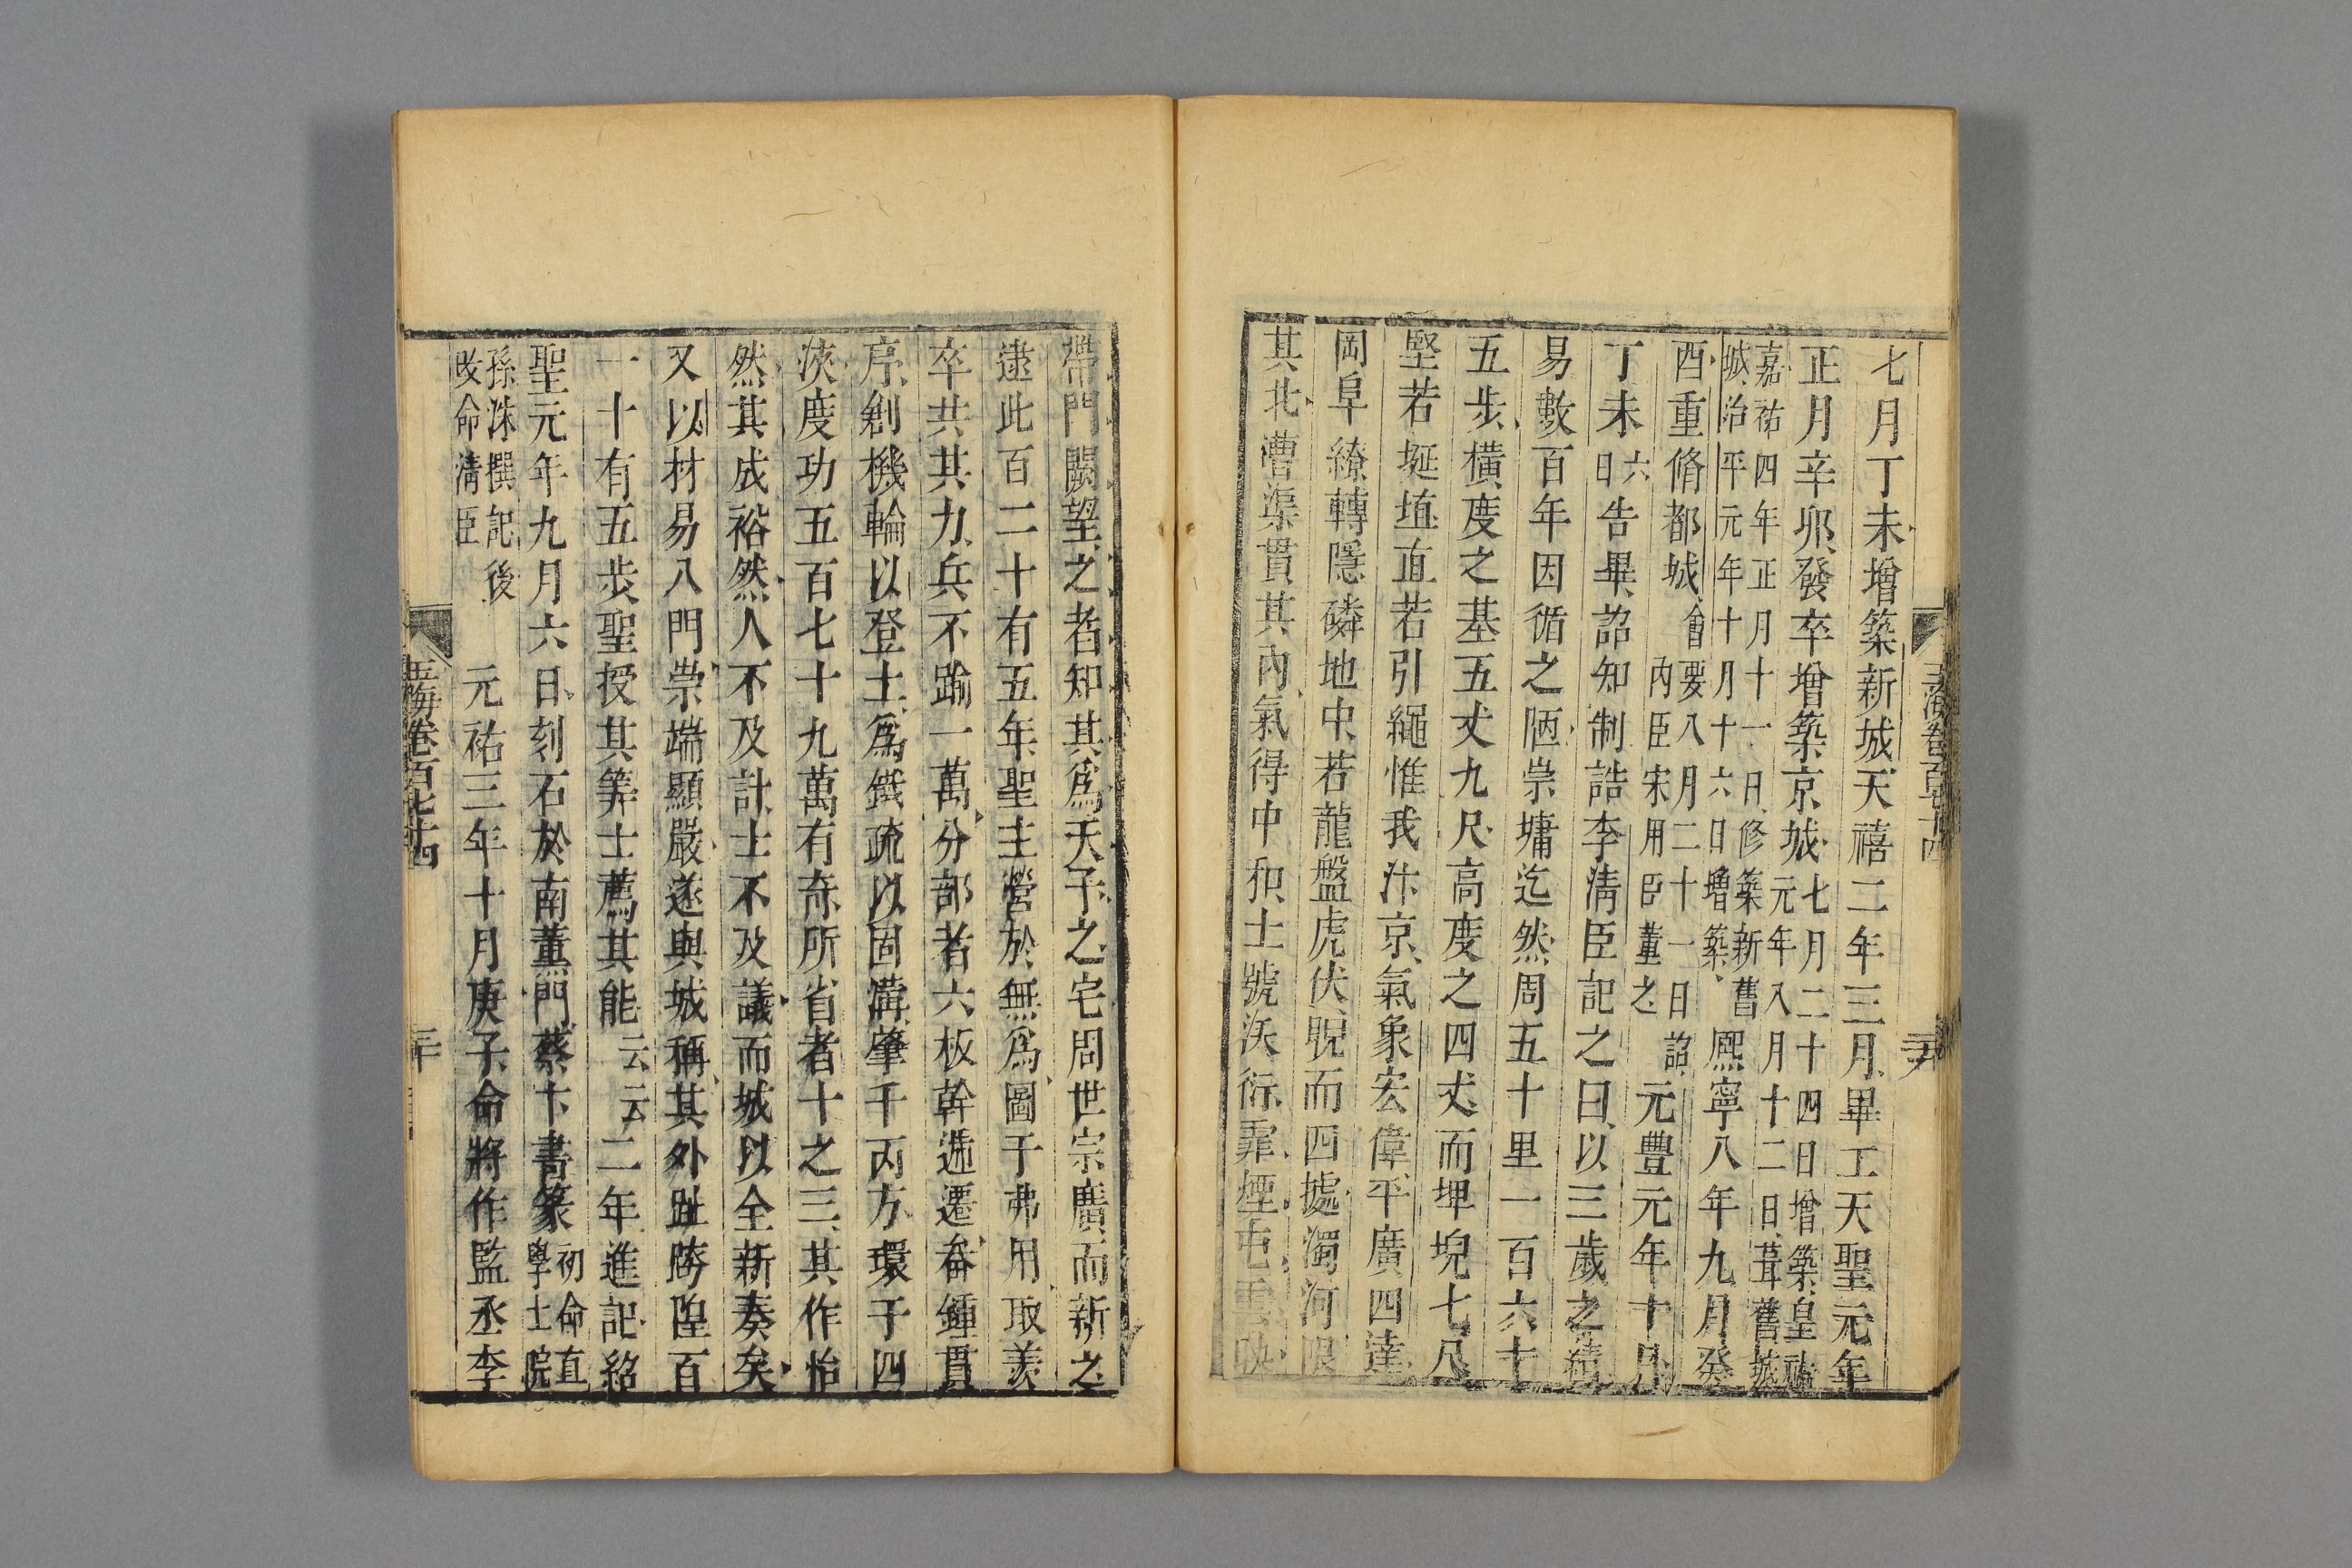 七月丁未增築新城天禧二年三月畢工天聖元年
正月辛卯發卒增築京城七月二十四日增築皇祐
元年八月十二日葺舊城
嘉祐四年正月十一日修築新舊
城治平元年十月十六日增築熙寧八年九月癸
酉重脩都城會要八月二十一日詔
內臣宋用臣董之元豐元年十月
丁未六日告畢詔知制誥李清臣記之曰以三歲之績
易數百年因循之陋崇墉迄然周五十里一百六十
五步橫度之基五丈九尺高度之四丈而埤堄七尺
堅若埏埴直若引繩惟我汴京氣象宏偉平廣四達
岡阜繚轉隱磷地中若龍盤虎伏睨而四據濁河限
其北漕渠貫其內氣得中和土號沃衍霏煙屯雲映
帶門闕望之者知其爲天子之宅周世宗廣而新之
逮此百二十有五年聖主營於無爲圖于弗用取羨
卒共其力兵不踰一萬分部者六板幹遞遷畚鍾貫
序創機輪以登土爲鐵疏以固溝肇千丙方環于四
浹度功五百七十九萬有奇所省者十之三其作怡
然其成裕然人不及計士不及議而城以全新奏矣
又以材易八門崇端顯嚴遂與城稱其外趾勝隍百
一十有五步聖授其筭士薦其能云云二年進記紹
聖元年九月六日刻石於南薰門蔡卞書篆初命直
學士院
孫洙撰記後
改命清臣元祐三年十月庚子命將作監丞李
玉海卷百七十四